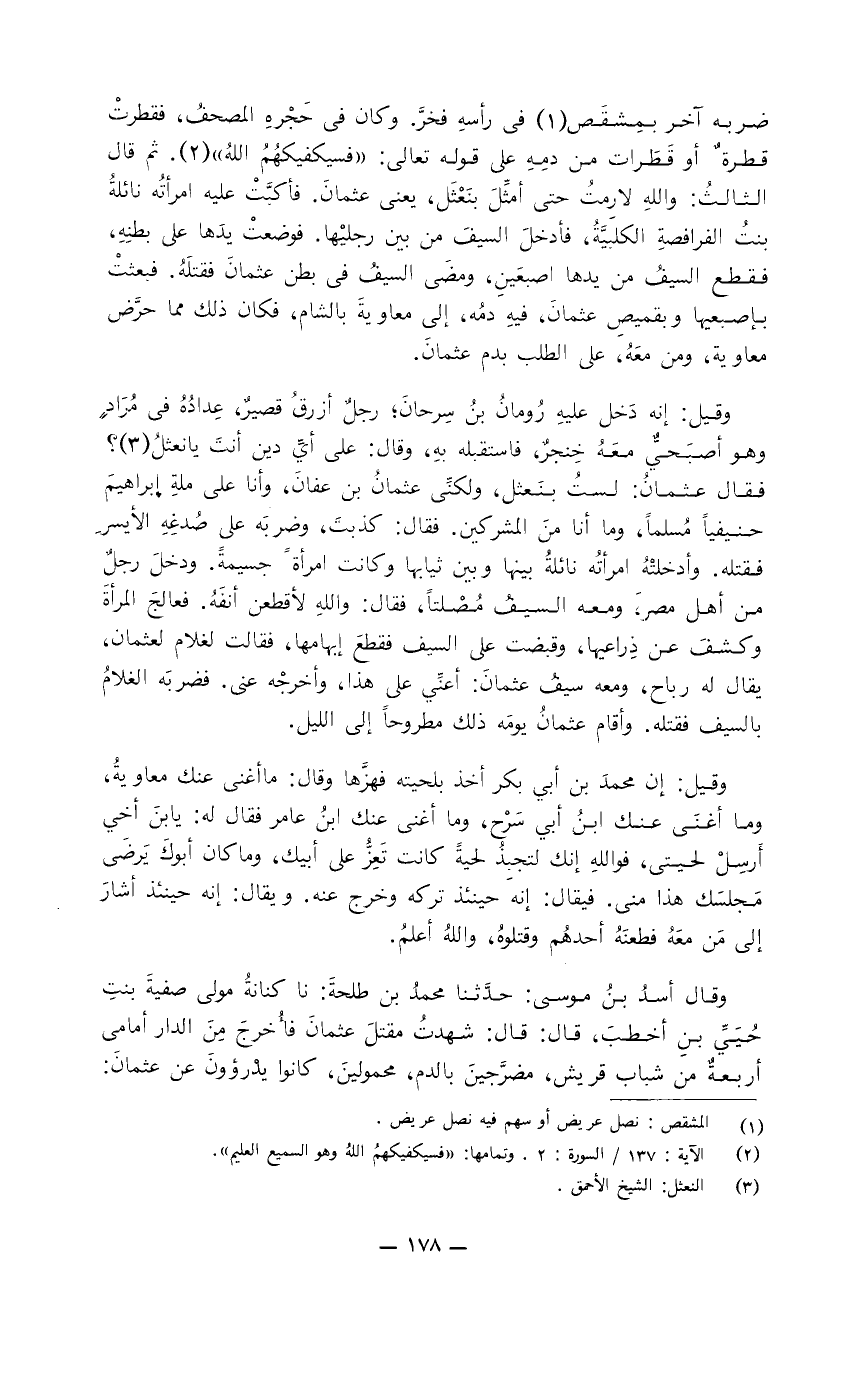 ضربه آخر بمِشقَص(١) فى رأسهِ فخرَّ. وكان فى حَجْرهِ المصحفُ، فقطرتْ
قطرةٌ أو قَطَرات من دمِهِ على قوله تعالى: «فسيكفيكهُمُ اللهُ»(٢). ثم قال
الثالثُ: واللهِ لارمتُ حتى أمثِّلَ بنَعْثَل، يعنى عثمانَ. فأكبَّتْ عليه امرأتُه نائلةُ
بنتُ الفرافصةِ الكلبيَّةُ، فأدخلَ السيفَ من بين رجليْها. فوضعتْ يدَها على بطنِهِ،
فقطع السيفُ من يدها اصبعَينِ، ومضَى السيفُ فى بطن عثمانَ فقتلَهُ. فبعثتْ
بإصبعيها وبقميصِ عثمانَ، فيهِ دمُه، إلى معاويةَ بالشام، فكان ذلك مما حرَّض
معاوية، ومن معَهُ، على الطلب بدم عثمانَ.
وقيل: إنه دَخل عليهِ رُومانُ بنُ سِرحانَ؛ رجلٌ أزرقُ قصيرٌ، عِدادُهُ فى مُرَادٍ
وهو أصبَحيٌّ معَهُ خِنجرٌ، فاستقبله بهِ، وقال: على أيِّ دين أنتَ يانعثلُ(٣)؟
فقال عثمانُ: لستُ بنَعثل، ولكنِّى عثمانُ بن عفانَ، وأنا على ملةِ إبراهيمَ
حنيفياً مُسلماً، وما أنا منَ المشركين. فقال: كذبتَ، وضربَه على صُدغِهِ الأيسرِ
فقتله. وأدخلتْهُ امرأتُه نائلةُ بينها وبين ثيابها وكانت امرأةً جسيمةً. ودخلَ رجلٌ
من أهل مصرَ، ومعه السيفُ مُصْلتاً، فقال: واللهِ لأقطعن أنفَهُ. فعالجَ المرأةَ
وكشفَ عن ذِراعيها، وقبضت على السيف فقطعَ إبهامها، فقالت لغلام لعثمان،
يقال له رباح، ومعه سيفُ عثمانَ: أعنِّي على هذا، وأخرجْه عنى. فضربَه الغلامُ
بالسيف فقتله. وأقام عثمانُ يومَه ذلك مطروحاً إلى الليل.
وقيل: إن محمدَ بن أبي بكر أخذ بلحيته فهزَّها وقال: ماأغنى عنك معاويةُ،
وما أغنَى عنك ابنُ أبي سَرْح، وما أغنى عنك ابنُ عامر فقال له: يابنَ أخي
أَرسِلْ لحيتى، فواللهِ إنك لتجبِذُ لحيةً كانت تَعِزُّ على أبيك، وماكان أبوكَ يَرضَى
مَجلسَك هذا منى. فيقال: إنه حينئذ تركه وخرج عنه. ويقال: إنه حينئذ أشارَ
إلى مَن معَهُ فطعنَهُ أحدهُم وقتلوهُ، واللهُ أعلمُ.
وقال أسدُ بنُ موسى: حدَّثنا محمدُ بن طلحةَ: نا كنانةُ مولى صفيةَ بنتِ
حُيَيِّ بنِ أخطبَ، قال: قال: شهدتُ مقتلَ عثمانَ فأُخرجَ مِنَ الدار أمامى
أربعةٌ من شباب قريش، مضرَّجينَ بالدم، محمولينَ، كانوا يدْرؤونَ عن عثمانَ:
(١) المشقص : نصل عريض أو سهم فيه نصل عريض .
(٢) الآية : ١٣٧ / السورة : ٢ . وتمامها: «فسيكفيكهمُ اللهُ وهو السميع العليم».
(٣) النعثل: الشيخ الأحمق .
— ١٧٨ —